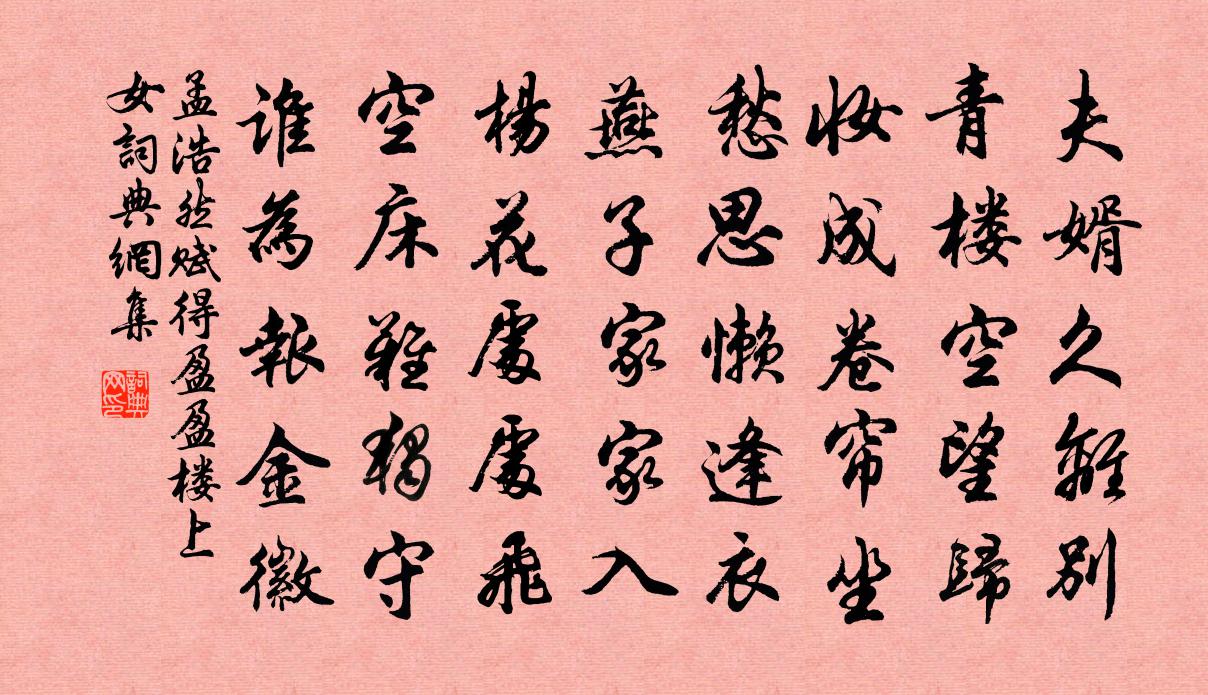 夫婿久離別
青楼空望歸
妆成卷帘坐
愁思懒逢衣
燕子家家入
楊花處處飛
空床難獨守
谁為報金徽
孟浩然赋得盈盈楼上
女詞典網集
詞典
网印